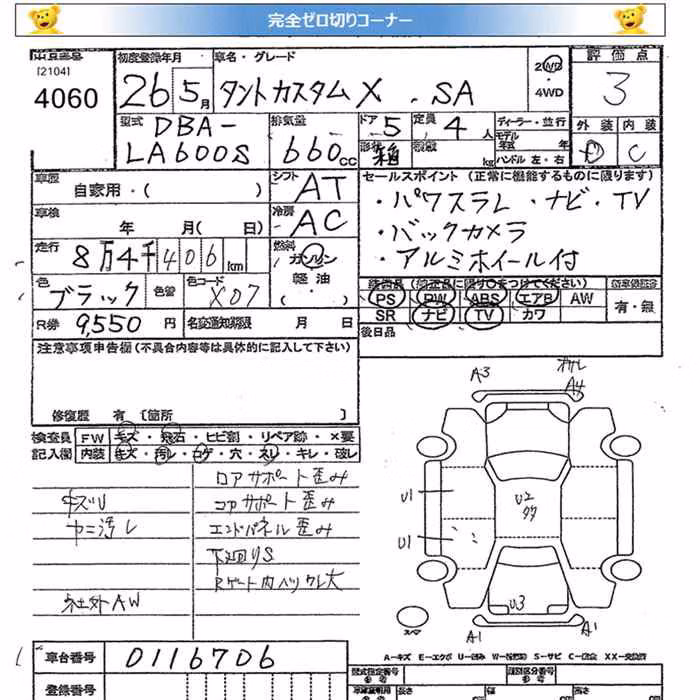 完全ゼロ切りコーナー
出品番号 初度登録年月 車名・グレード 2WD 評価点
[2104]
4060 26 5月 タントカスタム X . SA ・ 4WD 3
型式 排気量 ドア 定員 ディーラー・並行 外装 内装
DBA- 5 4人 モデル 年式 年 D C
LA600S 660cc 形状 箱 積載 kg ハンドル 左・右
車歴 シフト セールスポイント(正常に機能するものに限ります)
自家用・( ) AT ・パワスラL・ナビ・TV
車検 冷房
年 月( 日) AC ・バックカメラ
走行 燃料
8万4千406km ガソリン ・アルミホイール付
色 色替 色コード 軽油
ブラック X07 ・( )
PS PW ABS エアB AW 有・無
SR ナビ TV カワ
R券 9,550円 名変通知期限 月 日 後日品
注意事項申告欄(不具合内容等は具体的に記入して下さい)
修復歴 有 [箇所 ]
検査員 FW キズ・飛石・ヒビ割・リペア跡・×要
記入欄 内装 キズ・汚レ・コゲ・穴・スレ・キレ・破レ
ロアサポート歪み
キズU コアサポート歪み
ヤニ汚レ エンドパネル歪み
下廻りS
Rゲート内ヘックレ大
社外AW
A3 A4
U1 U2
U1
U3
スペア A1 A1
A-キズ E-エクボ U-凹み W-補修跡 S-サビ C-腐食 XX-交換済
車台番号 0116706 型式指定番号 類別区分番号
登録番号 長さ 幅 高さ